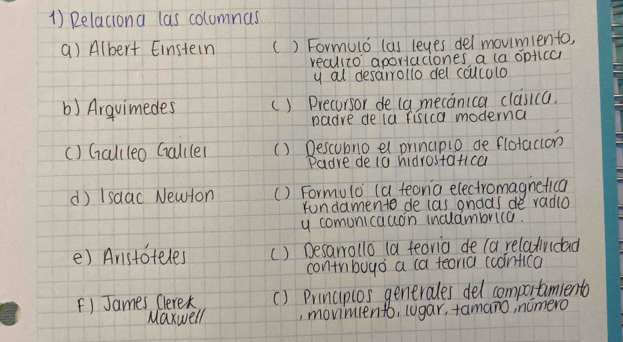 1) Relaciona las columnas
a) Albert Einstein
( ) Formuló las leyes del movimiento,
realizó aportaciones a la óptica
y al desarrollo del cálculo
b) Arquímedes
( ) Precursor de la mecánica clásica.
padre de la física moderna
c) Galileo Galilei
( ) Descubrio el principio de flotación
Padre de la hidrostática
d) Isaac Newton
( ) Formuló la teoría electromagnética
fundamento de las ondas de radio
y comunicación inalámbrica.
e) Aristóteles
( ) Desarrollo la teoría de la relatividad
contribuyó a la teoría cuántica
F) James Clerek
Maxwell
( ) Principios generales del comportamiento
, movimiento, lugar, tamaño, número